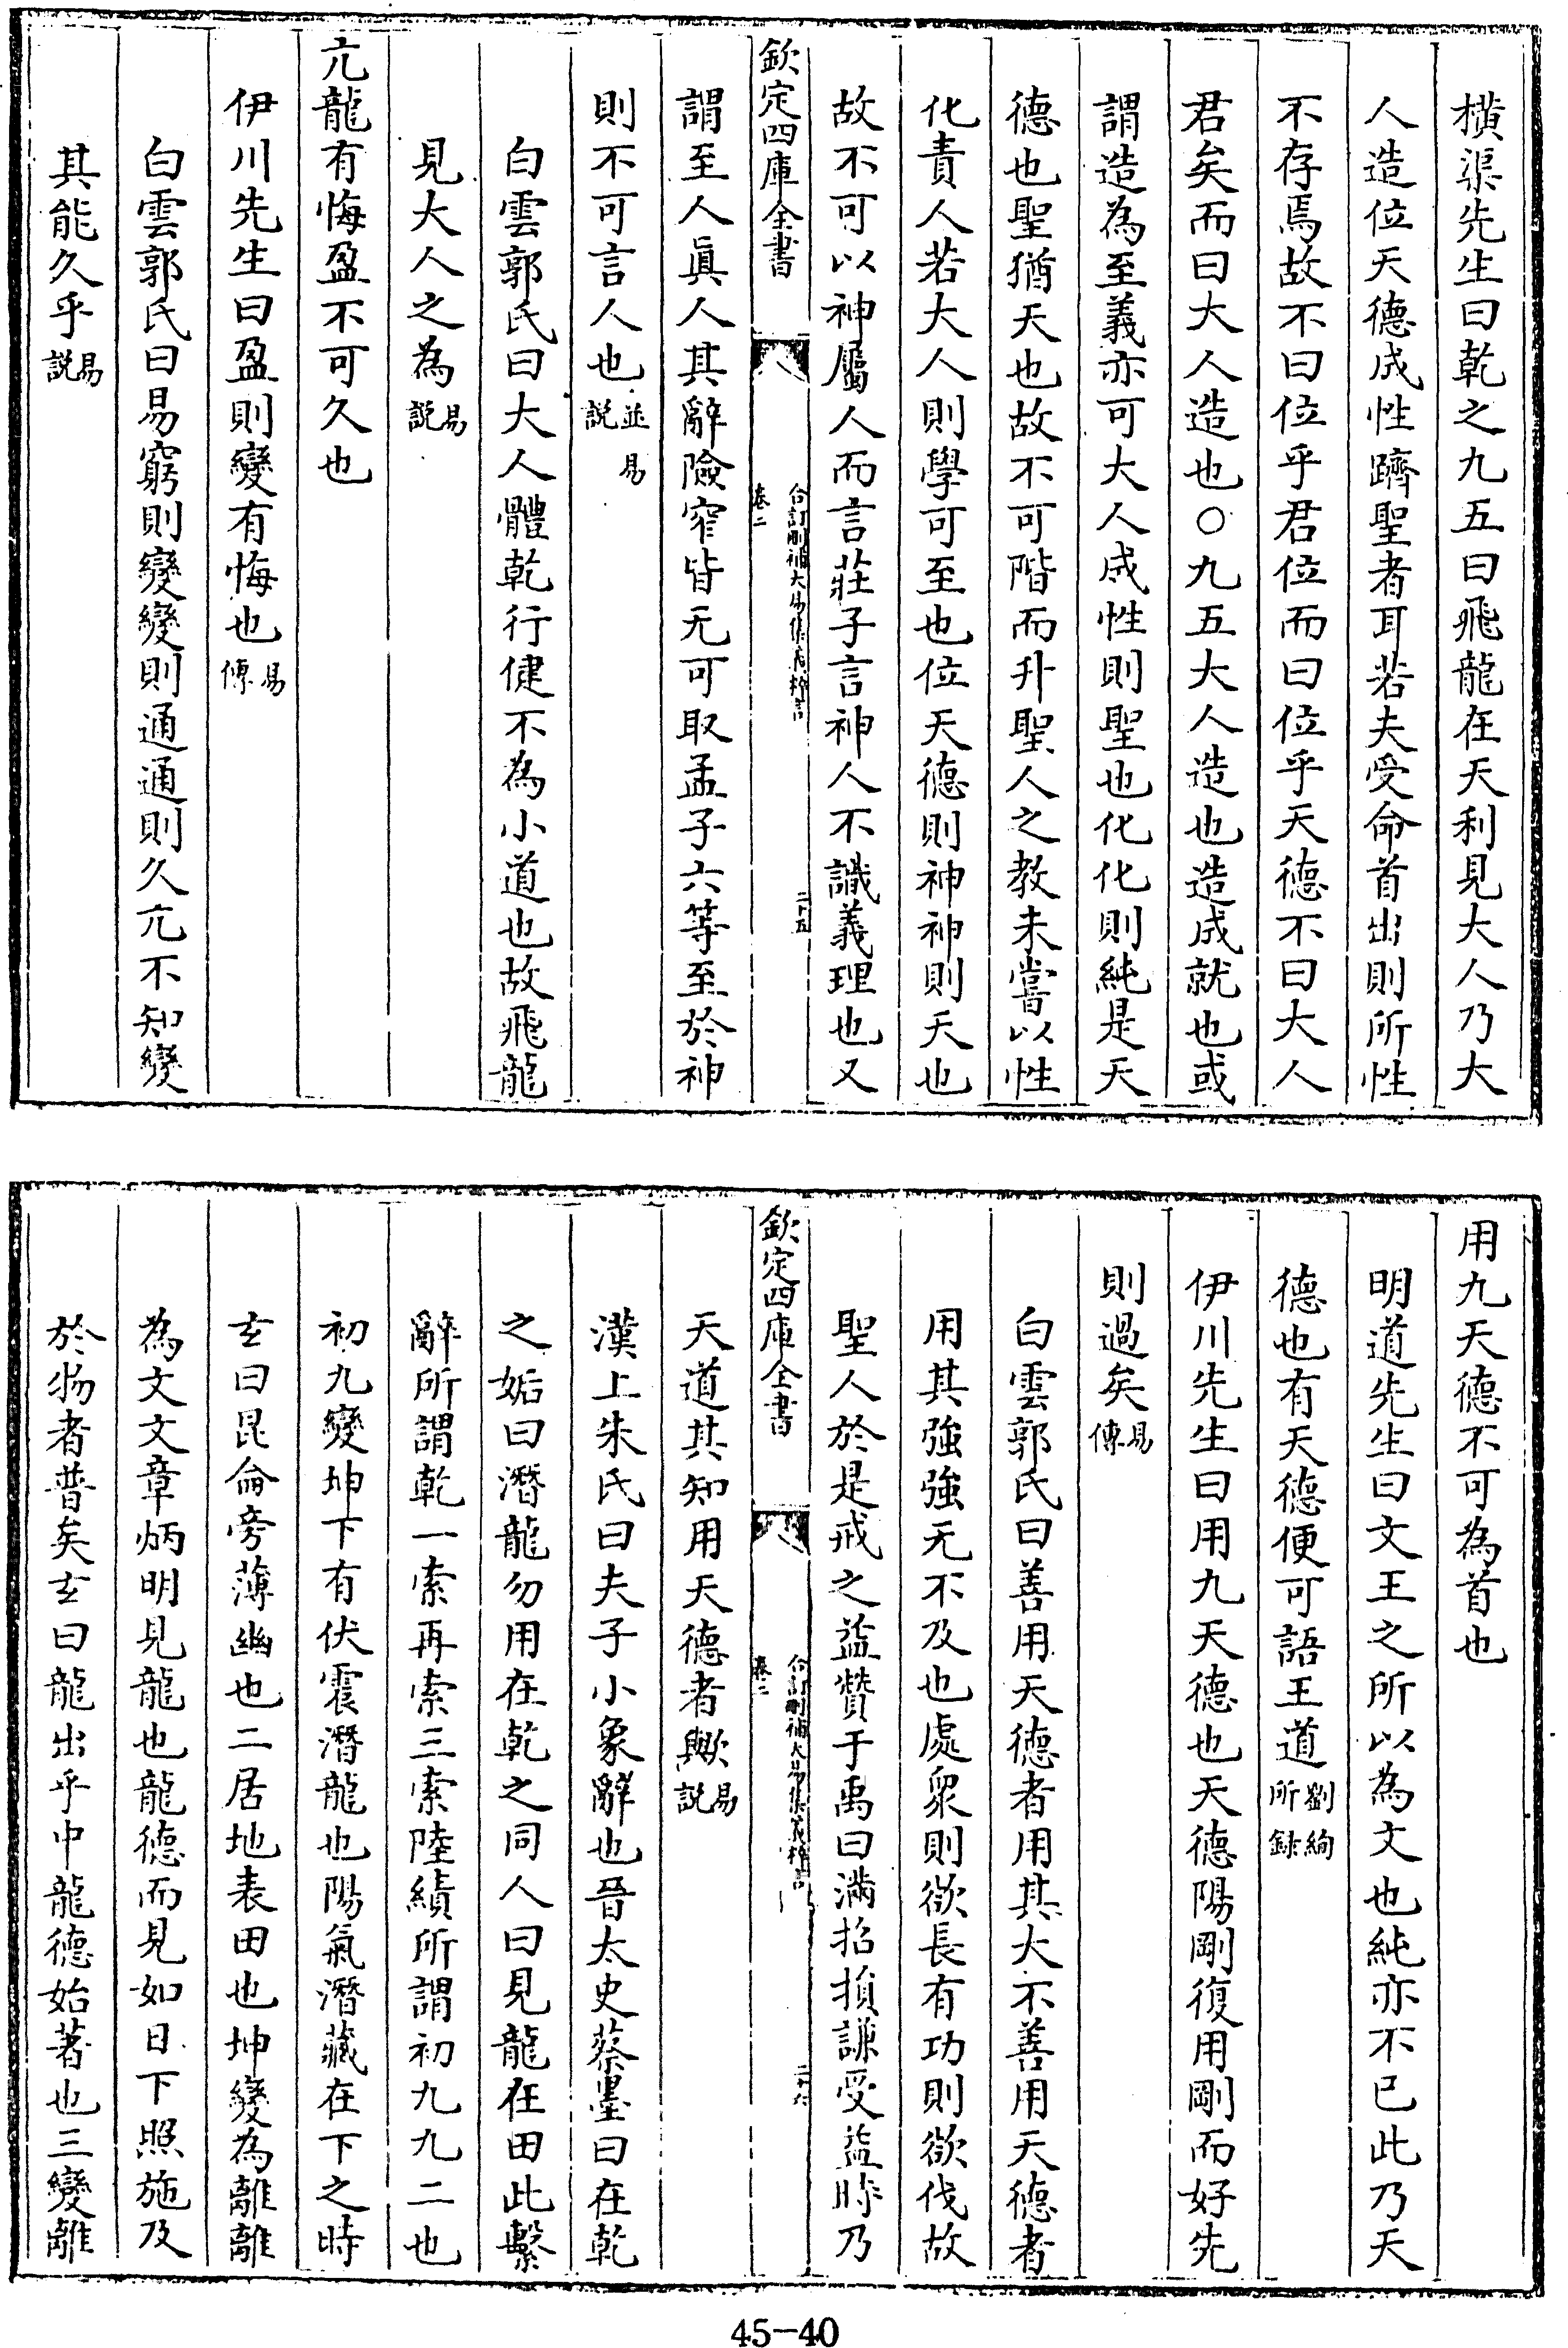 橫渠先生曰乾之九五曰飛龍在天利見大人乃大
人造位天德成性躋聖者耳若夫受命首出則所性
不存焉故不曰位乎君位而曰位乎天德不曰大人
君矣而曰大人造也○九五大人造也造成就也或
謂造為至義亦可大人成性則聖也化化則純是天
德也聖猶天也故不可階而升聖人之教未嘗以性
化責人若大人則學可至也位天德則神神則天也
故不可以神屬人而言莊子言神人不識義理也又
欽定四庫全書
合訂刪補大易集義粹言
卷二
二十五
謂至人眞人其辭險窄皆无可取孟子六等至於神
則不可言人也並易說
白雲郭氏曰大人體乾行健不為小道也故飛龍
見大人之為易說
亢龍有悔盈不可久也
伊川先生曰盈則變有悔也易傳
白雲郭氏曰易窮則變變則通通則久亢不知變
其能久乎易說
用九天德不可為首也
明道先生曰文王之所以為文也純亦不已此乃天
德也有天德便可語王道劉絢所錄
伊川先生曰用九天德也天德陽剛復用剛而好先
則過矣易傳
白雲郭氏曰善用天德者用其大不善用天德者
用其強強无不及也處衆則欲長有功則欲伐故
聖人於是戒之益贊于禹曰滿招損謙受益時乃
欽定四庫全書
合訂刪補大易集義粹言
卷二
二十六
天道其知用天德者歟易說
漢上朱氏曰夫子小象辭也晉太史蔡墨曰在乾
之姤曰潛龍勿用在乾之同人曰見龍在田此繫
辭所謂乾一索再索三索陸績所謂初九九二也
初九變坤下有伏震潛龍也陽氣潛藏在下之時
玄曰昆侖旁薄幽也二居地表田也坤變為離離
為文文章炳明見龍也龍德而見如日下照施及
於物者普矣玄曰龍出乎中龍德始著也三變離
45-40